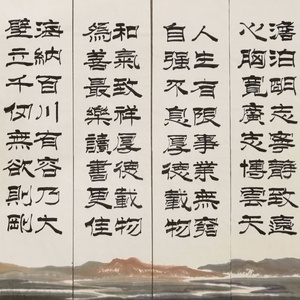 澹泊明志寧靜致遠
心胸寬廣志博雲天
人生有限事業無窮
自强不息厚德載物
和氣致祥厚德載物
爲善最樂讀書更佳
海納百川有容乃大
壁立千仞無欲則剛